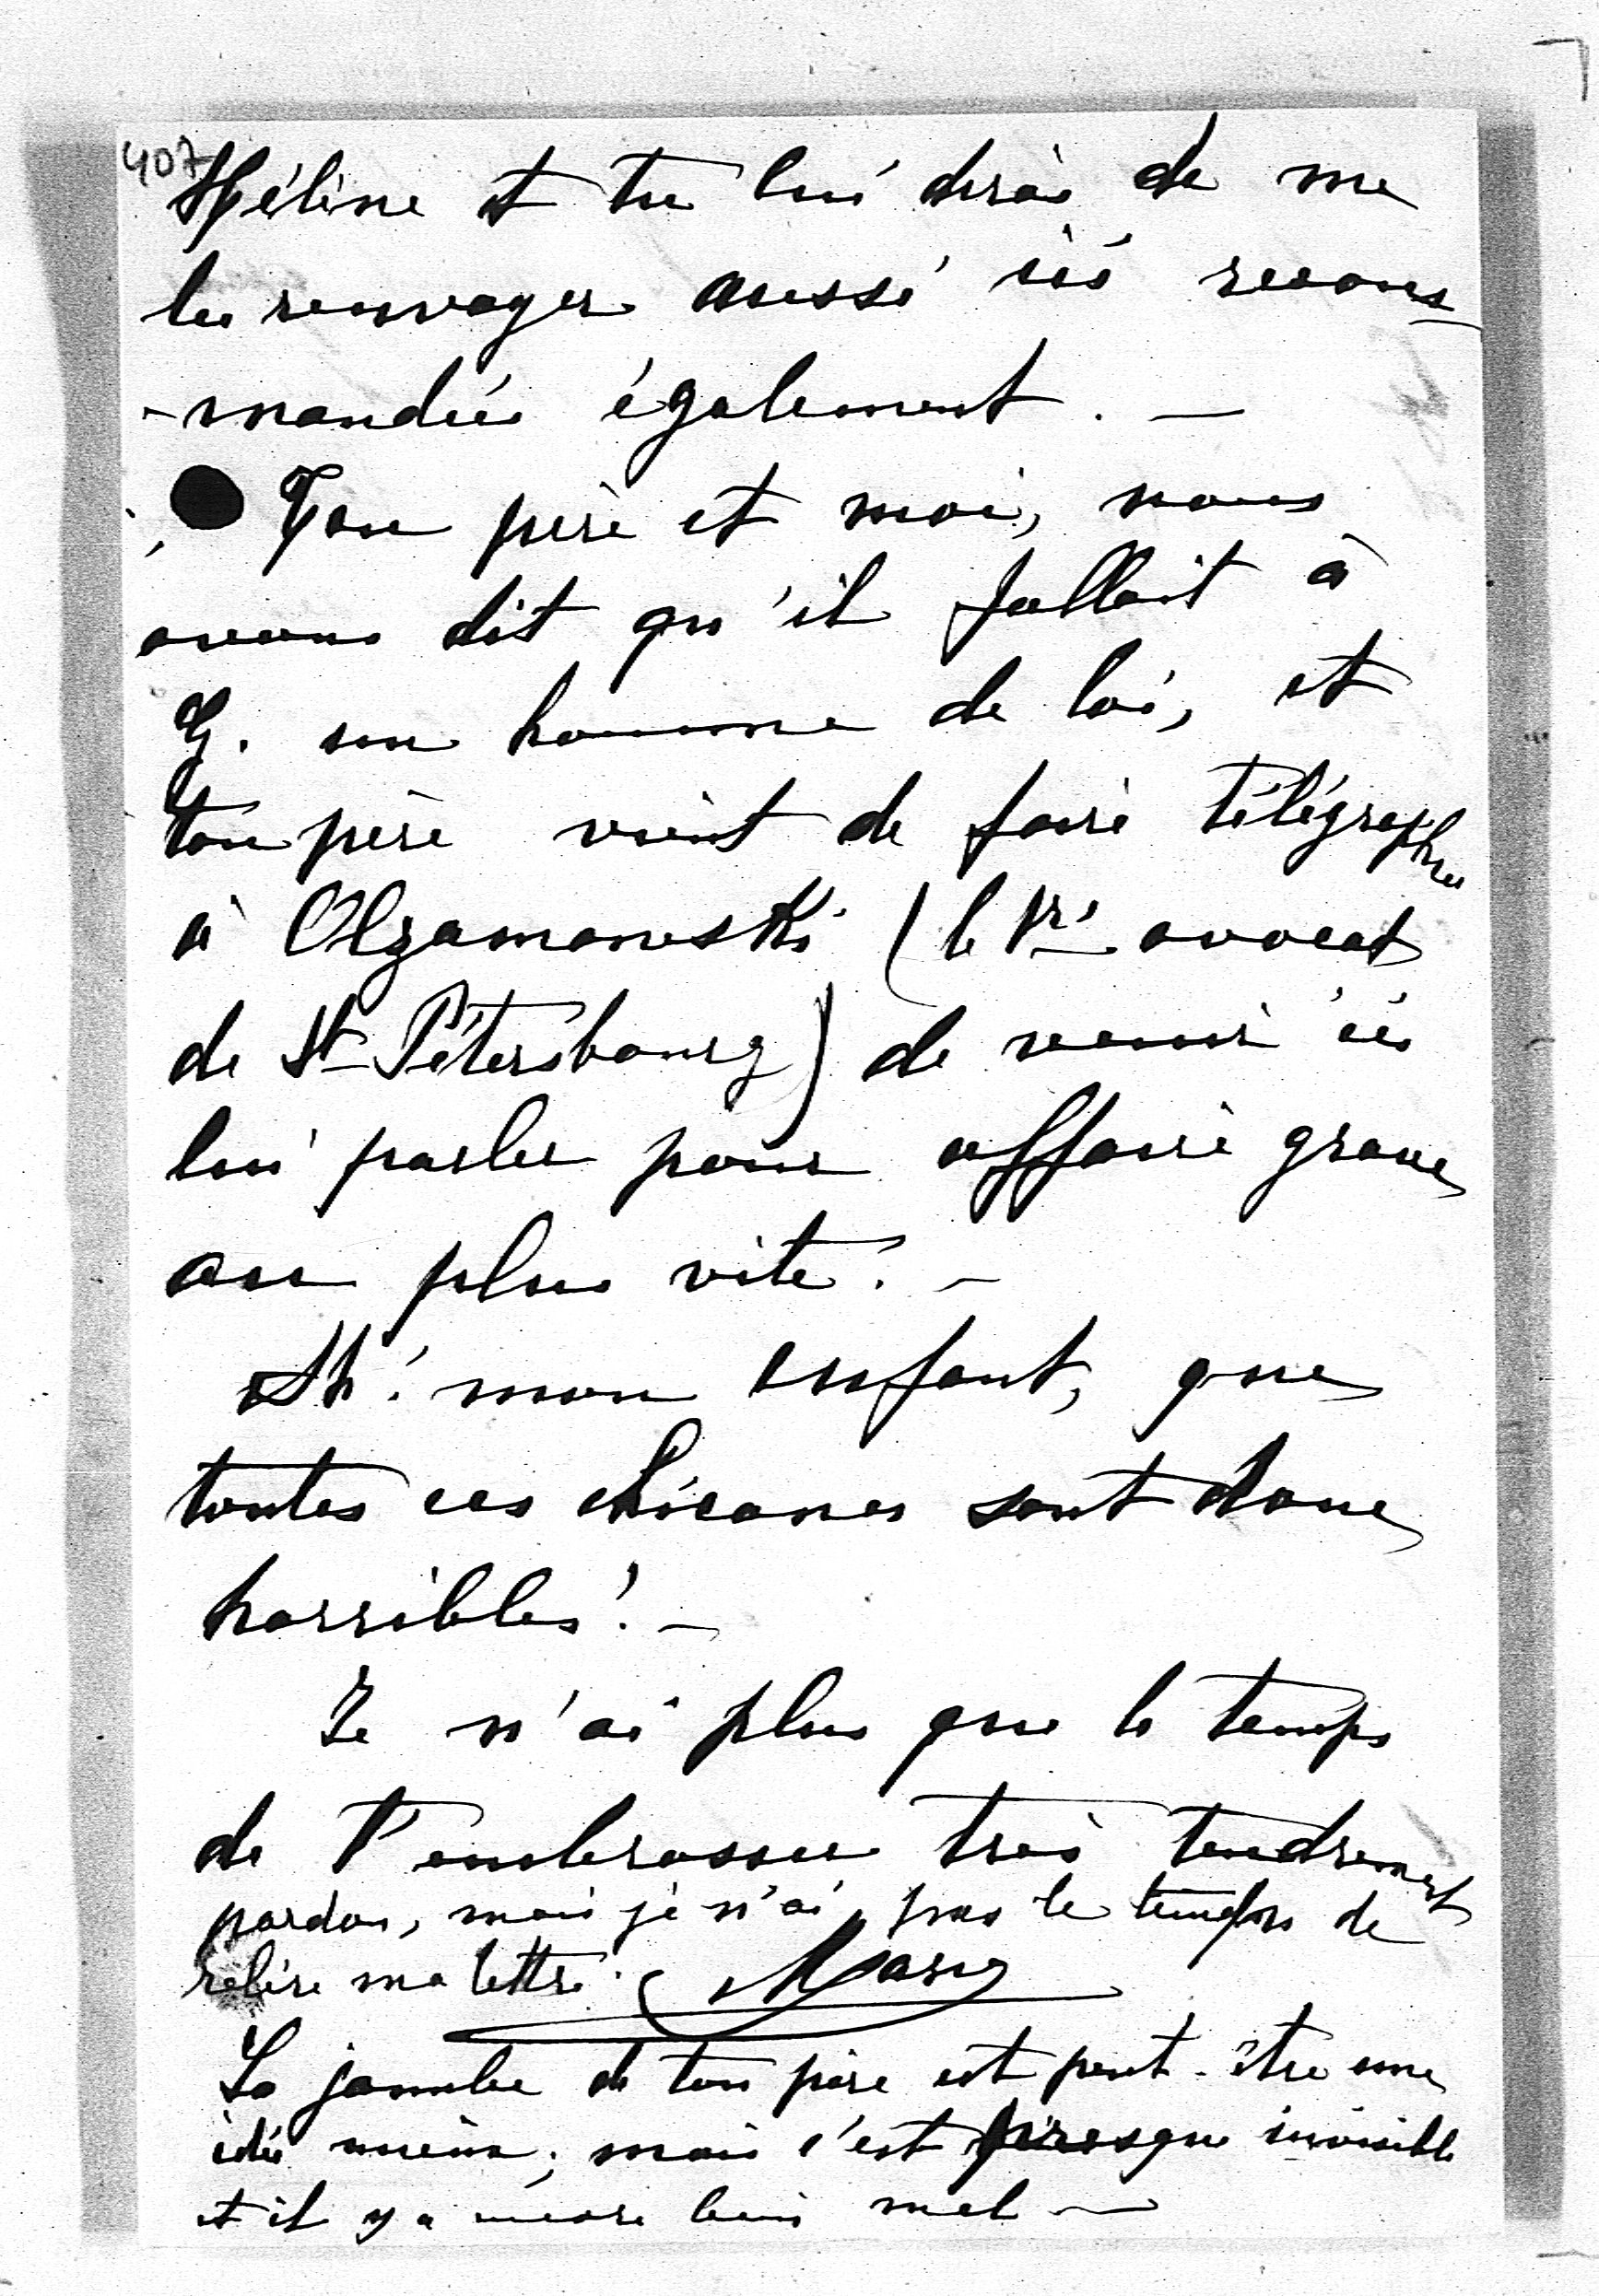 407
Hélène et tu lui diras de me
les renvoyer aussi ici recom
-mandées également. —
Ton père et moi, nous
avons dit qu'il fallait à
G. un homme de loi, et
ton père vient de faire télégraphier
à Olzamowski (le 1r avocat
de St Pétersbourg) de venir ici
lui parler pour affaire grave
au plus vite. —
Ah! mon enfant, que
toutes ces chicanes sont donc
horribles! —
Je n'ai plus que le temps
de t'embrasser très tendrement
pardon, mais je n'ai pas le temps de
relire ma lettre. Mary
La jambe de ton père est peut-être une
idée mieux; mais c'est presque invisible
et il y a encore bien mal —